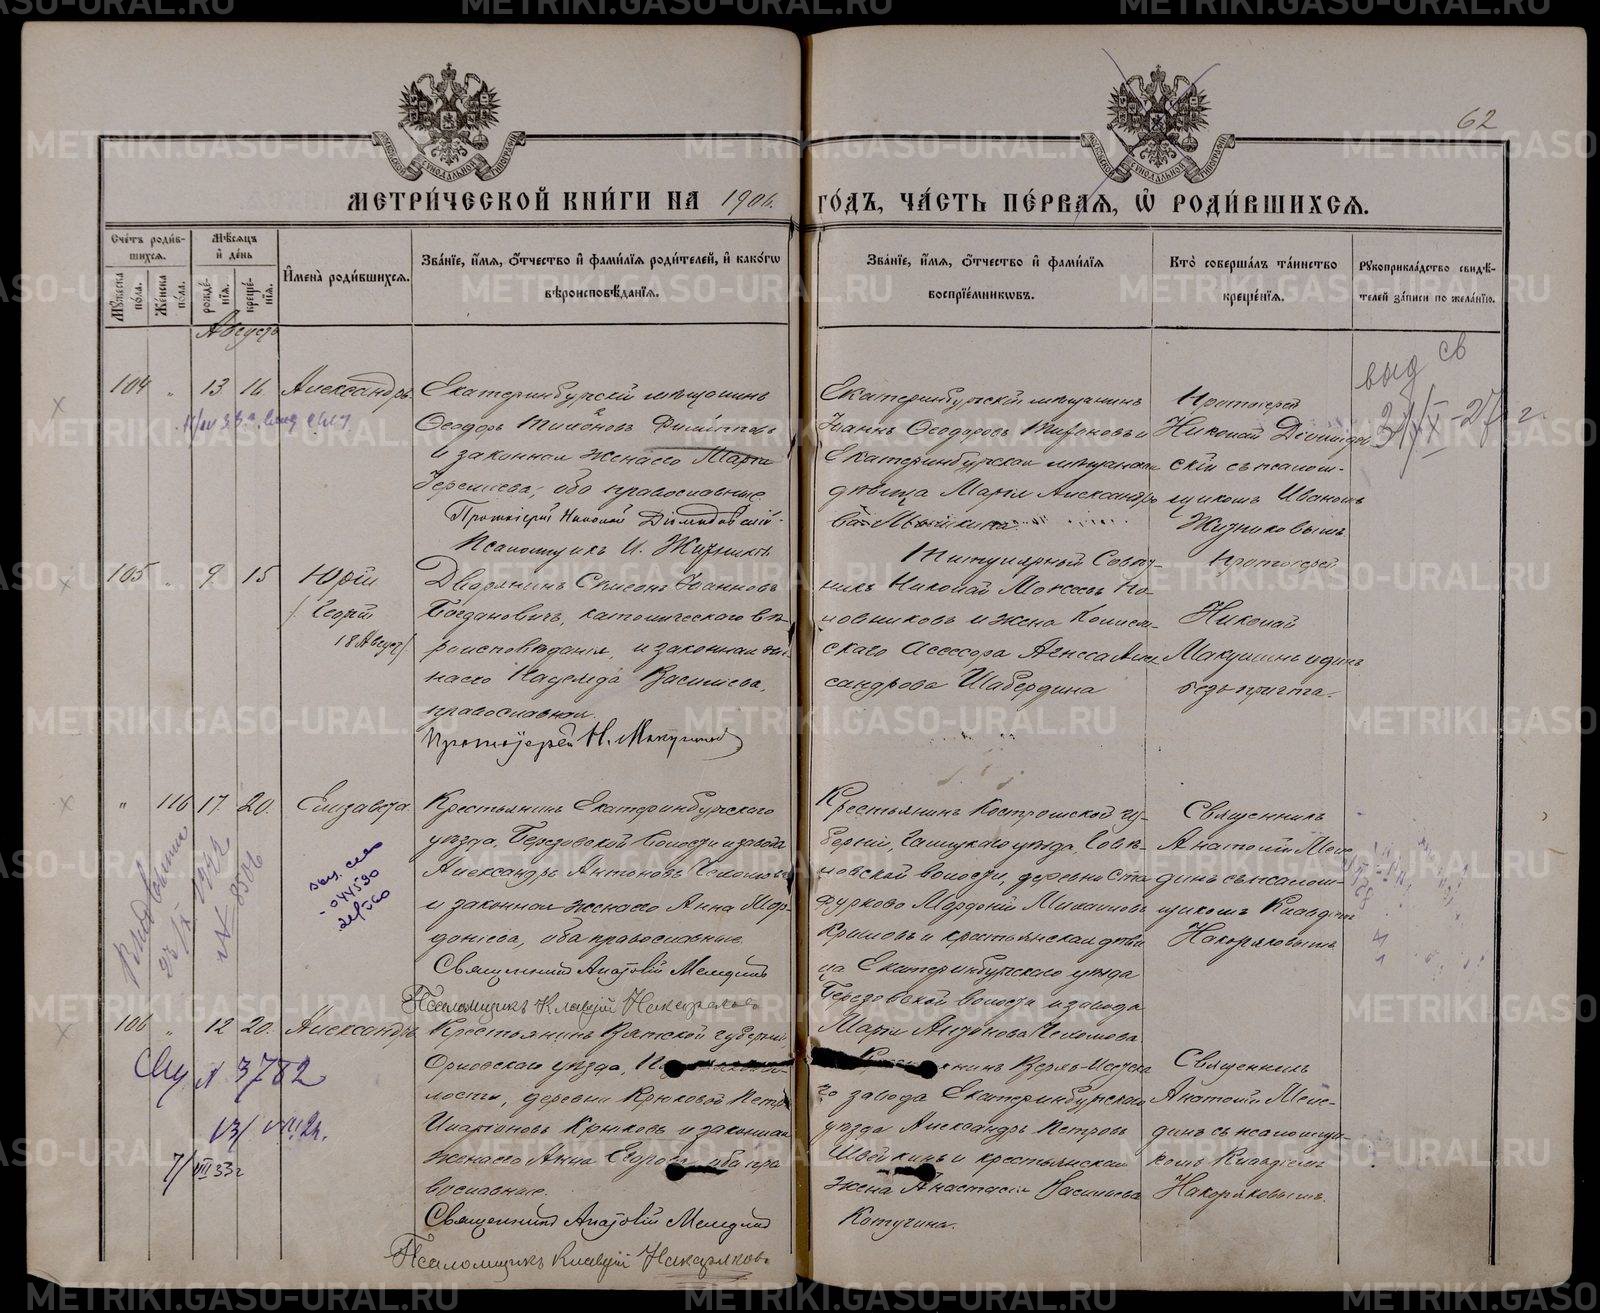 METRIKI.GASO-URAL.RU
62
МЕТРИ́ЧЕСКОЙ КНИ́ГИ НА 1906. ГО́ДЪ, ЧА́СТЬ ПЕ́РВАЯ, Ѡ РОДИ́ВШИХСЯ.
Сче́тъ роди́в-
шихся.
Му́жеска по́ла.
Же́нска по́ла.
Мѣ́сяцъ и де́нь
рожде́нїя.
креще́нїя.
И҆мена̀ роди́вшихся.
Зва́нїе, и҆́мя, ѻ҆́тчество и҆ фами́лїя роди́телей, и҆ како́гѡ
вѣроисповѣ́данїя.
Зва́нїе, и҆́мя, ѻ҆́тчество и҆ фами́лїя
воспрїе́мникѡвъ.
Кто̀ соверша́лъ та́инство
креще́нїя.
Рукоприкла́дство свидѣ́-
телей за́писи по жела́нїю.
Августъ
104 " 13 16 Александръ
Екатеринбургскій мѣщанинъ
Ѳеодоръ Тихоновъ Филипповъ
и законная жена его Марія
Еремѣева; оба православные.
Протоіерей Николай Діомидовскій.
Псаломщикъ И. Жизниковъ
Екатеринбургскій мѣщанинъ
Іоаннъ Ѳеодоровъ и
Екатеринбургская мѣщанская
дѣвица Марія Александро-
ва Мышкина.
Протоіерей
Николай Діомидов-
скій съ псалом-
щикомъ Иваномъ
Жизниковымъ
выд св
105 " 9 15 Юрій
/Георгій
18 Август/
Дворянинъ Симеонъ Іоанновъ
Богдановичъ, католическаго вѣ-
роисповѣданія, и законная же-
на его Надежда Васильева,
православная.
Протоіерей Н. Макушинъ
Титулярный Совѣт-
никъ Николай Моисеевъ По-
повниковъ и жена Коллеж-
скаго Асессора Агнесса Алек-
сандрова Шабердина
Протоіерей
Николай
Макушинъ одинъ
безъ причта.
" 116 17. 20. Елизавета.
Крестьянинъ Екатеринбургскаго
уѣзда, Березовской волости и завода
Александръ Антоновъ Чеполовъ
и законная жена его Анна Мар-
доніева, оба православные.
Священникъ Анатолій Мелединъ
Псаломщикъ Клавдій Накоряковъ
Крестьянинъ Костромской гу-
берніи, Галицкаго уѣзда,
новской волости, деревни
Мардоній Михаиловъ
Крыловъ и крестьянская дѣви-
ца Екатеринбургскаго уѣзда
Березовской волости и завода
Марія Антонова Чеполова
Священникъ
Анатолій Меле-
динъ съ псалом-
щикомъ Клавдіемъ
Накоряковымъ
106 " 12 20. Александръ
Крестьянинъ Вятской губерніи
Орловскаго уѣзда,
лости, деревни Крюковой Петръ
Илларіоновъ Крюковъ и законная
жена его Анна оба пра-
вославные.
Священникъ Анатолій Мелединъ
Псаломщикъ Клавдій Накоряковъ
Верхъ-Исетска-
го завода Екатеринбургскаго
уѣзда Александръ Петровъ
Швейкинъ и крестьянская
жена Анастасія Васильева
Котугина.
Священникъ
Анатолій Меле-
динъ съ псаломщи-
комъ Клавдіемъ
Накоряковымъ.
N 3782
13/VIII 24.
7/VIII 33 г